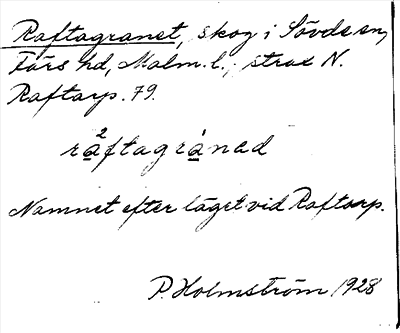 Raftagranet, skog i Sövde sn,
Färs hd, Malm. l., strax N.
Raftarp. 79.
ra²ftagrànad
Namnet efter läget vid Raftarp.
P. Holmström 1928